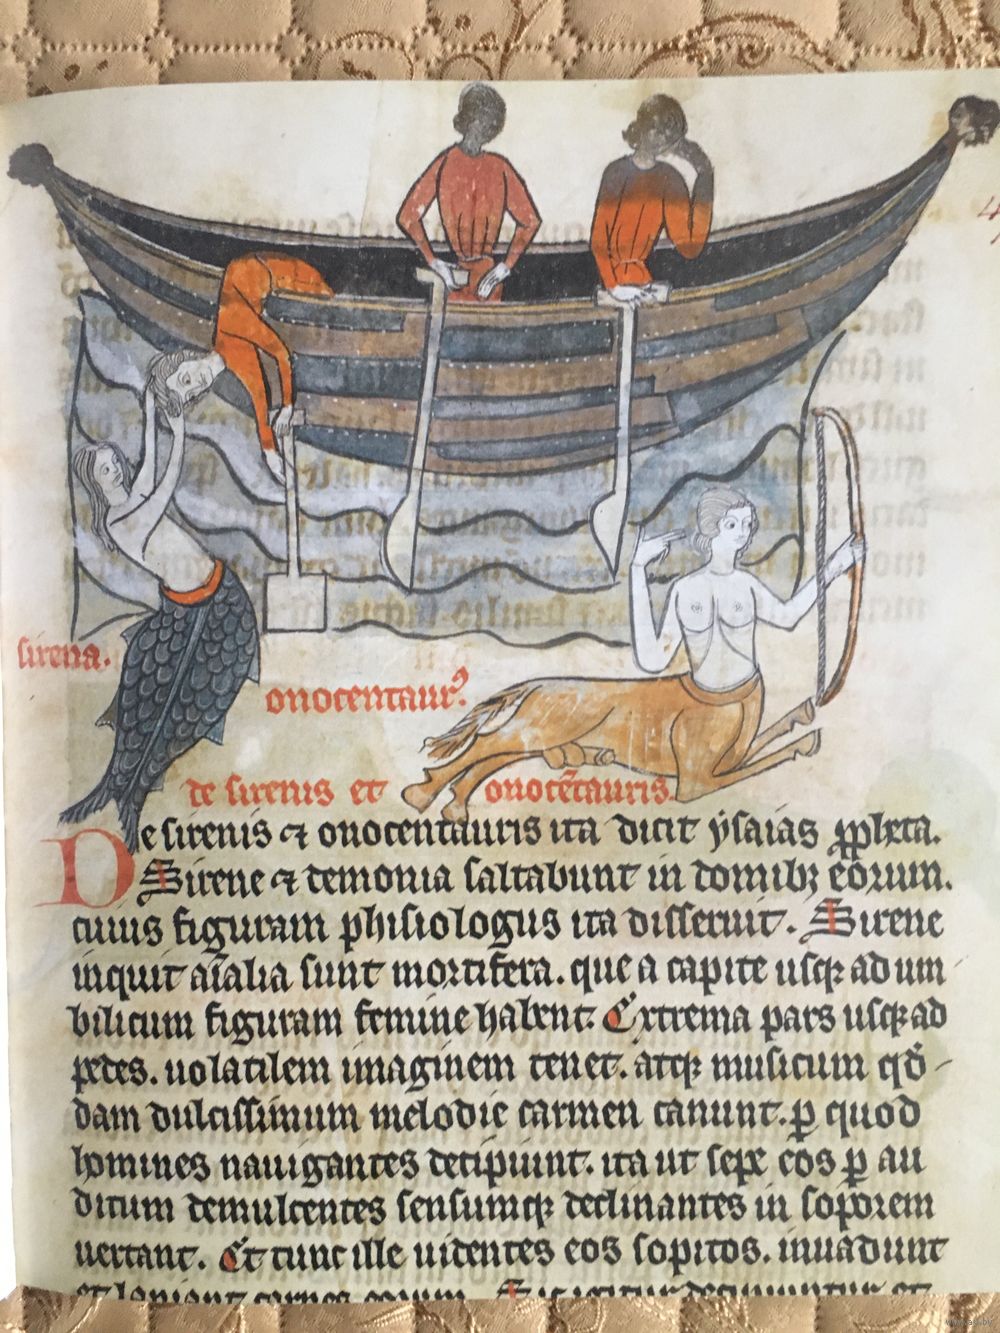 sirena.
onocentaur᾿
de sirenis et onocẽtauris.
De sirenis ⁊ onocentauris ita dicit ysaias ꝓpheta.
Sirene ⁊ demonia saltabunt in domibꝫ eorum.
cuius figuram phisiologus ita disseruit. Sirene
inquit aĩalia sunt mortifera. que a capite usqꝫ ad um
bilicum figuram femine habent. Extrema pars usqꝫ ad
pedes. uolatilem imaginem tenet. atqꝫ musicum qͦd-
dam dulcissimum melodie carmen canunt. ꝑ quod
homines nauigantes decipiunt. ita ut sepe eos ꝑ au
ditum demulcentes sensumqꝫ declinantes in soporem
uertant. Et tunc ille uidentes eos sopitos. inuadunt
et laniant carnes eorum. Sic